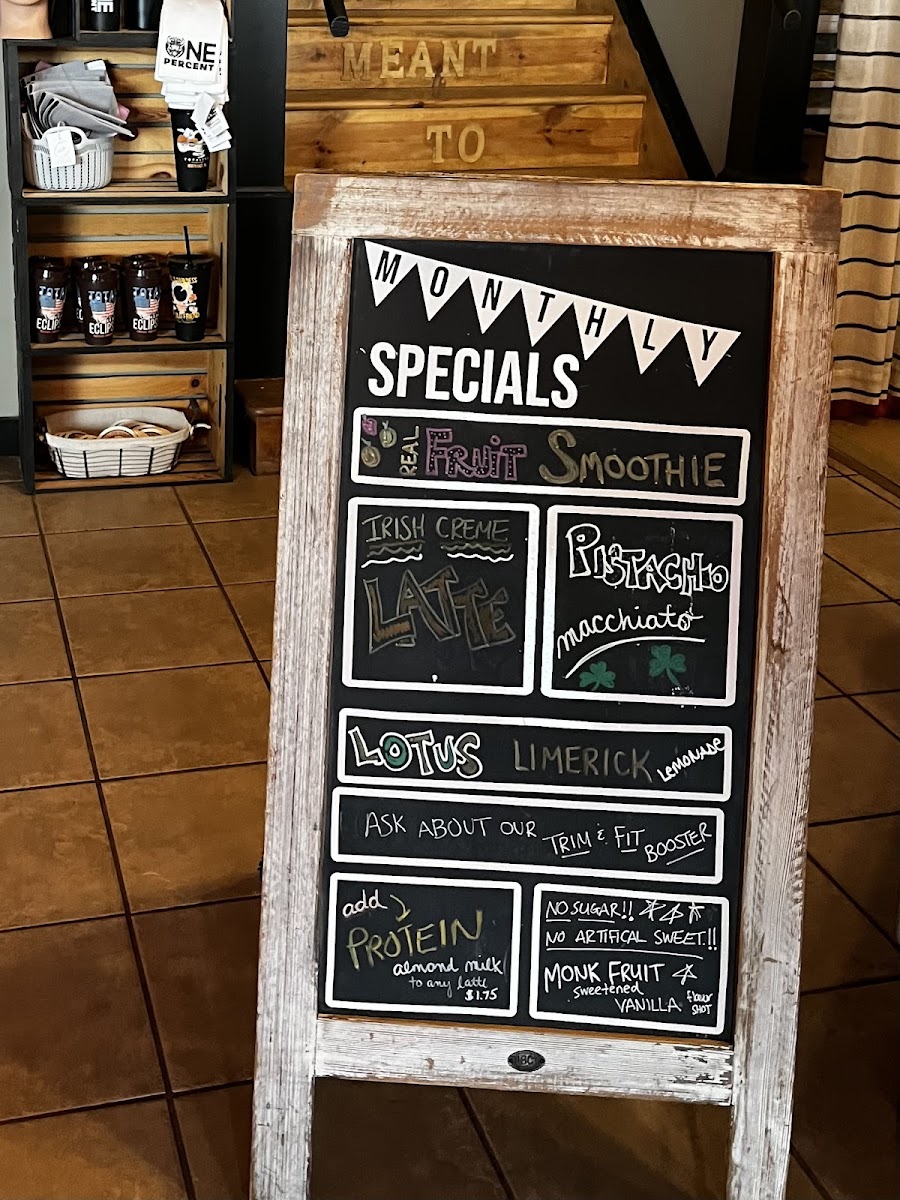 MEANT
TO
ONE
PERCENT
TOTALITY
ECLIPSE
MONTHLY
SPECIALS
REAL FRUIT SMOOTHIE
IRISH CREME
LATTE
PISTACHIO
macchiato
LOTUS LIMERICK LEMONADE
ASK ABOUT OUR TRIM & FIT BOOSTER
add
PROTEIN
almond milk
to any latte
$1.75
NO SUGAR!!
NO ARTIFICAL SWEET!!
MONK FRUIT
sweetened
VANILLA flavor
SHOT